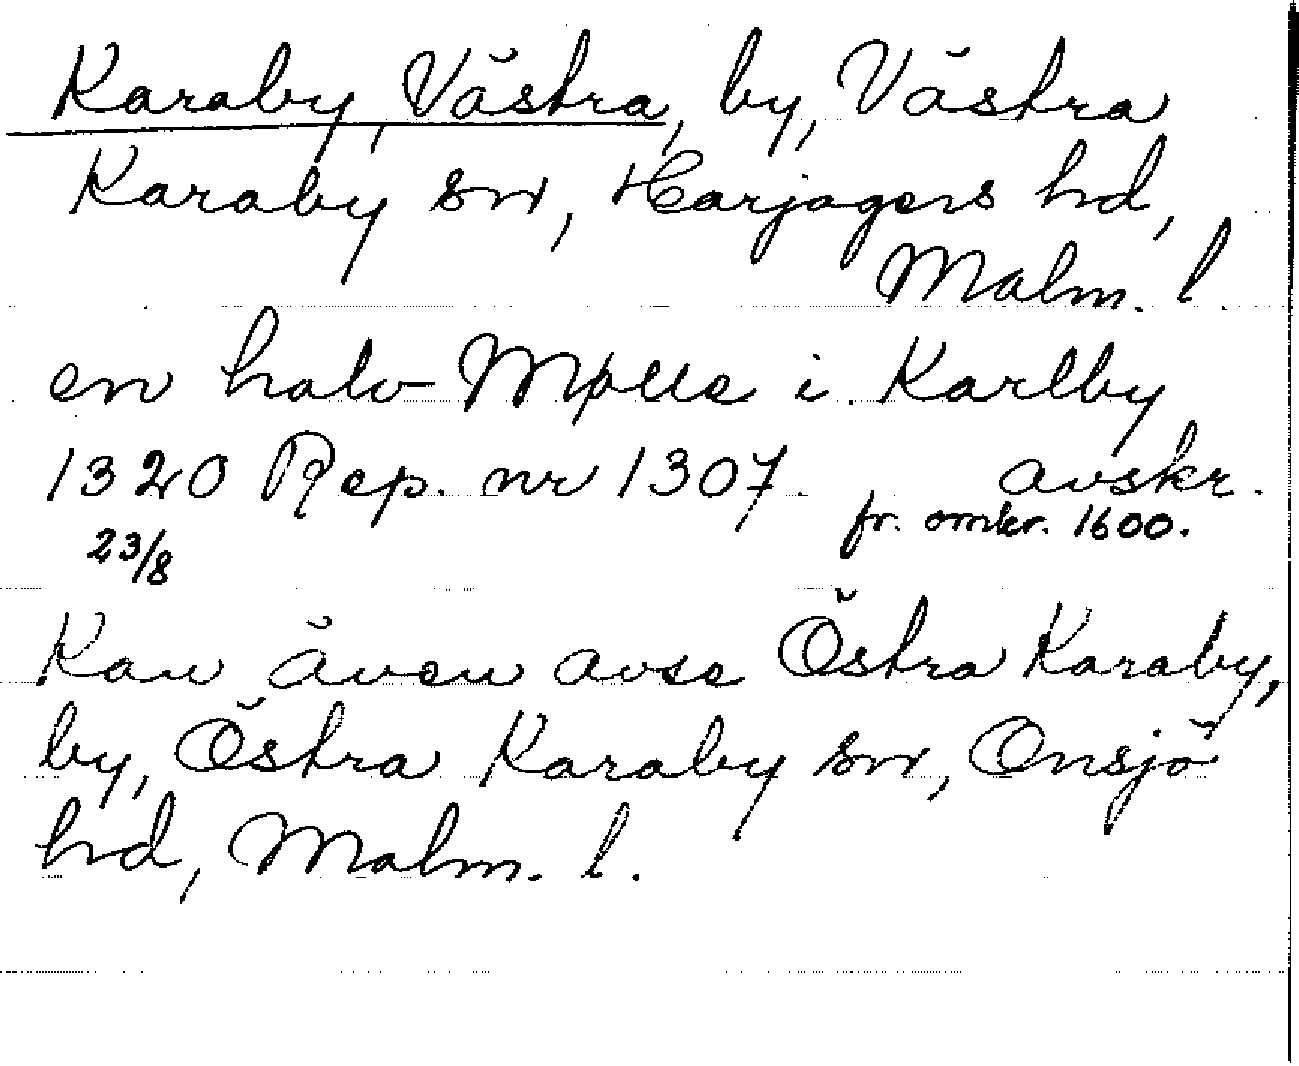 Karaby, Västra, by, Västra
Karaby sn, Harjagers hd,
Malm. l.
en halv Mølle i Karlby
1320 Rep. nr 1307. avskr.
fr. omkr. 1600.
23/8
Kan även avse Östra Karaby,
by, Östra Karaby sn, Onsjö
hd, Malm. l.